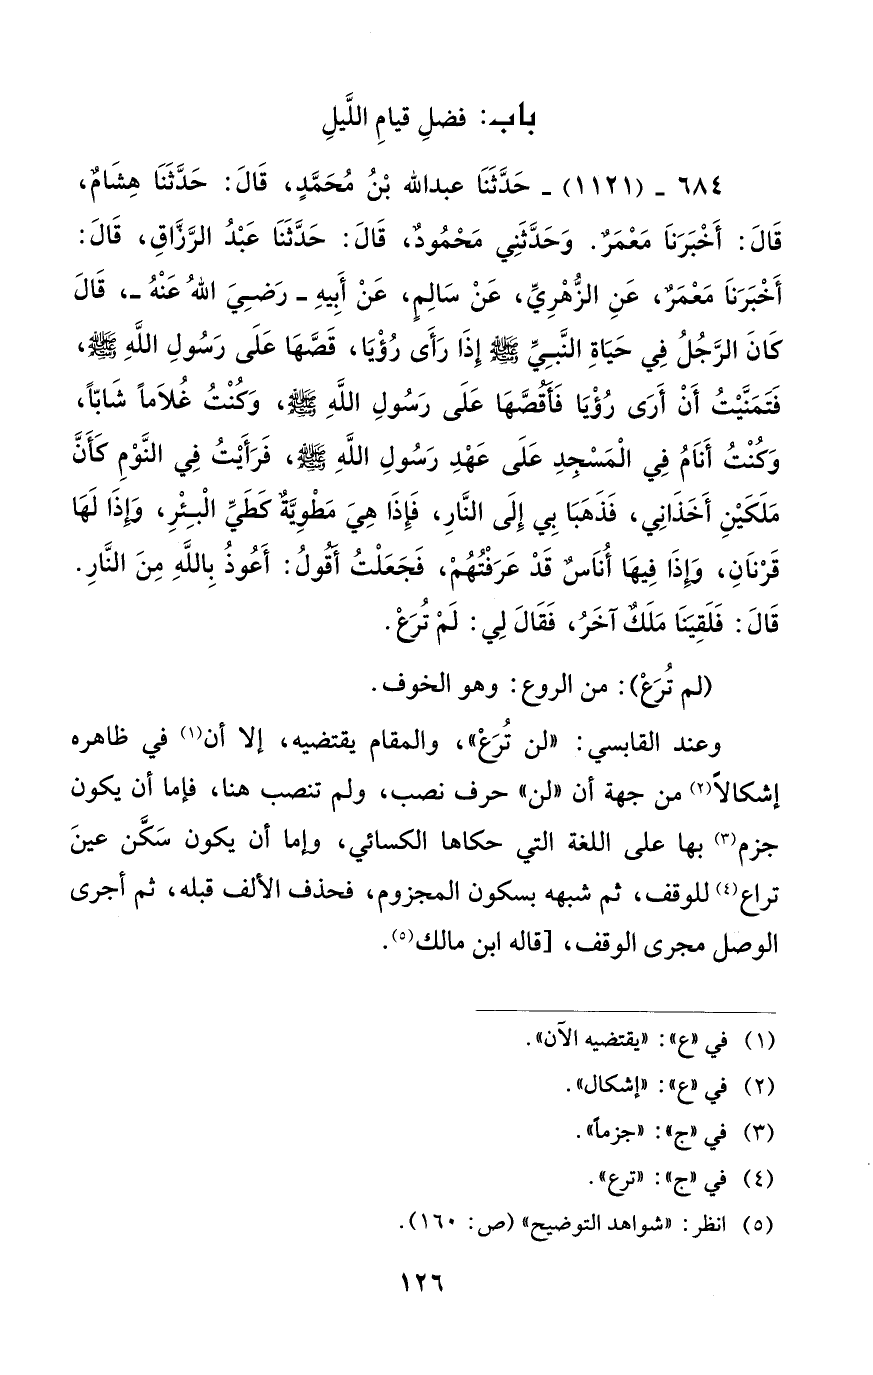 باب: فضلِ قيامِ اللَّيلِ
٦٨٤ ـ (١١٢١) ـ حَدَّثَنَا عبدالله بْنُ مُحَمَّدٍ، قَالَ: حَدَّثَنَا هِشَامٌ،
قَالَ: أَخْبَرَنَا مَعْمَرٌ. وَحَدَّثَنِي مَحْمُودٌ، قَالَ: حَدَّثَنَا عَبْدُ الرَّزَّاقِ، قَالَ:
أَخْبَرَنَا مَعْمَرٌ، عَنِ الزُّهْرِيِّ، عَنْ سَالِمٍ، عَنْ أَبِيهِ ـ رَضِيَ اللهُ عَنْهُ ـ، قَالَ
كَانَ الرَّجُلُ فِي حَيَاةِ النَّبِيِّ ﷺ إِذَا رَأَى رُؤْيَا، قَصَّهَا عَلَى رَسُولِ اللَّهِ ﷺ،
فَتَمَنَّيْتُ أَنْ أَرَى رُؤْيَا فَأَقُصَّهَا عَلَى رَسُولِ اللَّهِ ﷺ، وَكُنْتُ غُلاَماً شَابّاً،
وَكُنْتُ أَنَامُ فِي الْمَسْجِدِ عَلَى عَهْدِ رَسُولِ اللَّهِ ﷺ، فَرَأَيْتُ فِي النَّوْمِ كَأَنَّ
مَلَكَيْنِ أَخَذَانِي، فَذَهَبَا بِي إِلَى النَّارِ، فَإِذَا هِيَ مَطْوِيَّةٌ كَطَيِّ الْبِئْرِ، وَإِذَا لَهَا
قَرْنَانِ، وَإِذَا فِيهَا أُنَاسٌ قَدْ عَرَفْتُهُمْ، فَجَعَلْتُ أَقُولُ: أَعُوذُ بِاللَّهِ مِنَ النَّارِ.
قَالَ: فَلَقِيَنَا مَلَكٌ آخَرُ، فَقَالَ لِي: لَمْ تُرَعْ.
(لم تُرَعْ): من الروع: وهو الخوف.
وعند القابسي: «لن تُرَعْ»، والمقام يقتضيه، إلا أن(١) في ظاهره
إشكالاً(٢) من جهة أن «لن» حرف نصب، ولم تنصب هنا، فإما أن يكون
جزم(٣) بها على اللغة التي حكاها الكسائي، وإما أن يكون سَكَّن عينَ
تراع(٤) للوقف، ثم شبهه بسكون المجزوم، فحذف الألف قبله، ثم أجرى
الوصل مجرى الوقف، [قاله ابن مالك(٥).
(١) في «ع»: «يقتضيه الآن».
(٢) في «ع»: «إشكال».
(٣) في «ج»: «جزماً».
(٤) في «ج»: «ترع».
(٥) انظر: «شواهد التوضيح» (ص: ١٦٠).
١٢٦